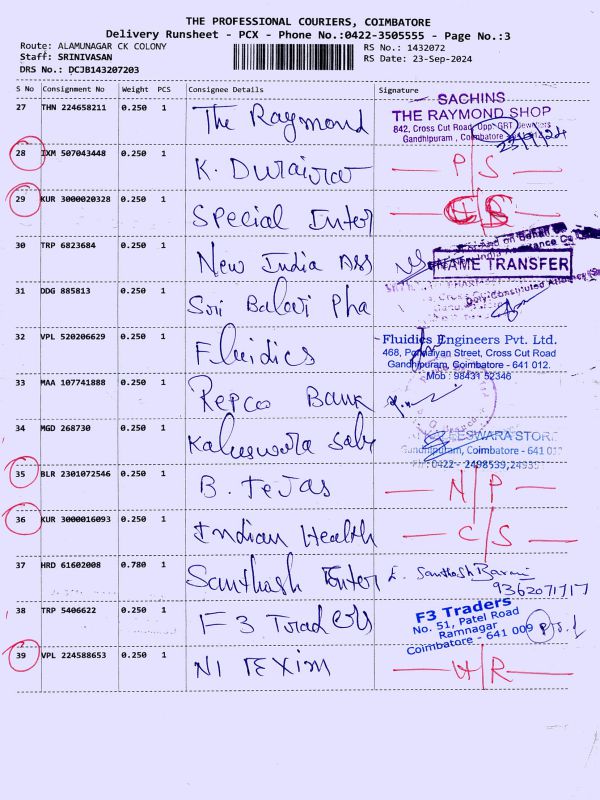 THE PROFESSIONAL COURIERS, COIMBATORE
Delivery Runsheet - PCX - Phone No.:0422-3505555 - Page No.:3
Route: ALAMUNAGAR CK COLONY
RS No.: 1432072
Staff: SRINIVASAN
RS Date: 23-Sep-2024
DRS No.: DCJB143207203
S No Consignment No Weight PCS Consignee Details Signature
27 THN 224658211 0.250 1 The Raymond
SACHINS
THE RAYMOND SHOP
842, Cross Cut Road, Opp. GRT Jewellers
Gandhipuram, Coimbatore
28 IXM 507043448 0.250 1 K. Durairao P/S
29 KUR 3000020328 0.250 1 Special Inter
30 TRP 6823684 0.250 1 New India Ass
NAME TRANSFER
31 DDG 885813 0.250 1 Sri Balaji Pha
Duly Constituted
32 VPL 520206629 0.250 1 Fluidics
Fluidics Engineers Pvt. Ltd.
468, Ponnaiyan Street, Cross Cut Road
Gandhipuram, Coimbatore - 641 012.
Mob : 98431 52346
33 MAA 107741888 0.250 1 Repco Bank
34 MGD 268730 0.250 1 Kaleswara Sabi
ESWARA STOR
Gandhipuram, Coimbatore - 641 01
0422 - 2498539,
35 BLR 2301072546 0.250 1 B. Tejas N/P
36 KUR 3000016093 0.250 1 Indian Health C/S
37 HRD 61602008 0.780 1 Santhosh Enter
E. Santhosh
9362071717
38 TRP 5406622 0.250 1 F3 Traders
F3 Traders
No. 51, Patel Road
Ramnagar
Coimbatore - 641 009
39 VPL 224588653 0.250 1 NITEXIM